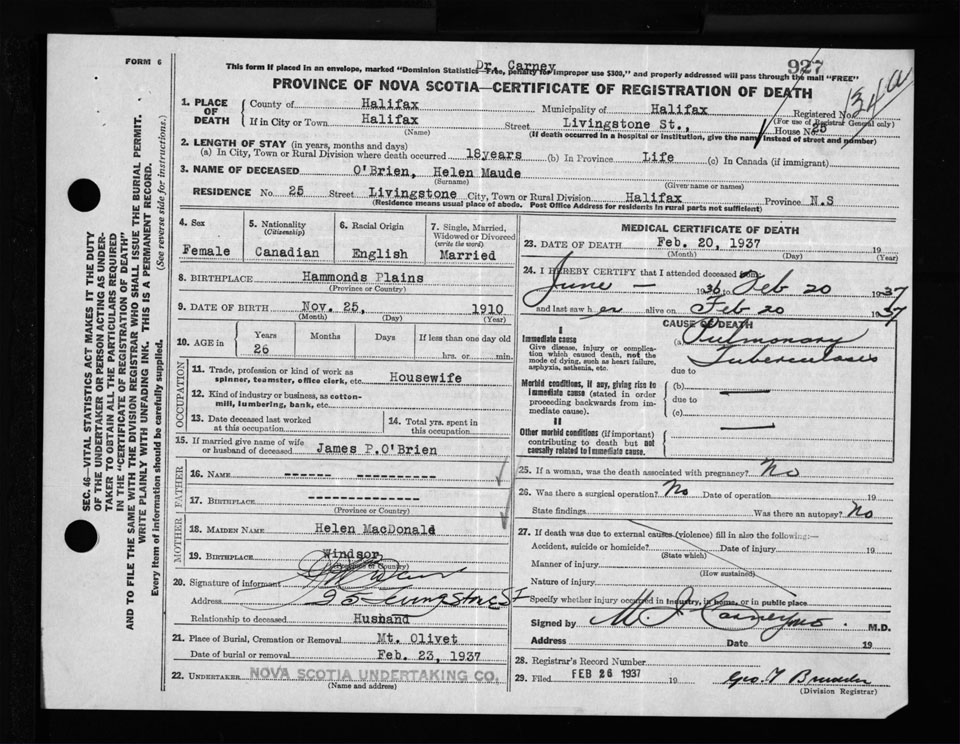 FORM 6
Dr. Carney
927
This form if placed in an envelope, marked "Dominion Statistics—Free, penalty for improper use $300," and properly addressed will pass through the mail "FREE"
PROVINCE OF NOVA SCOTIA—CERTIFICATE OF REGISTRATION OF DEATH
1. PLACE OF DEATH
County of Halifax Municipality of Halifax Registered No.
(For use of Registrar General only)
If in City or Town Halifax Street Livingstone St., House No. 25
(Name) (If death occurred in a hospital or institution, give the name instead of street and number)
2. LENGTH OF STAY (in years, months and days)
(a) In City, Town or Rural Division where death occurred 18years (b) In Province Life (c) In Canada (if immigrant)
3. NAME OF DECEASED O'Brien, Helen Maude
(Surname) (Given name or names)
RESIDENCE No. 25 Street Livingstone City, Town or Rural Division Halifax Province N.S
(Residence means usual place of abode. Post Office Address for residents in rural parts not sufficient)
4. Sex
Female
5. Nationality
(Citizenship)
Canadian
6. Racial Origin
English
7. Single, Married, Widowed or Divorced
(write the word)
Married
8. BIRTHPLACE Hammonds Plains
(Province or Country)
9. DATE OF BIRTH Nov. 25, 1910
(Month) (Day) (Year)
10. AGE in
Years Months Days If less than one day old
26 hrs. or min.
OCCUPATION
11. Trade, profession or kind of work as
spinner, teamster, office clerk, etc. Housewife
12. Kind of industry or business, as cotton-
mill, lumbering, bank, etc.
13. Date deceased last worked
at this occupation
14. Total yrs. spent in
this occupation
15. If married give name of wife
or husband of deceased James P.O'Brien
FATHER
16. NAME ------- -------
17. BIRTHPLACE --------------
(Province or Country)
MOTHER
18. MAIDEN NAME Helen MacDonald
19. BIRTHPLACE Windsor
(Province or Country)
20. Signature of informant
Address 25 Livingstone St
Relationship to deceased Husband
21. Place of Burial, Cremation or Removal Mt. Olivet
Date of burial or removal Feb. 23, 1937
22. UNDERTAKER NOVA SCOTIA UNDERTAKING CO.
(Name and address)
MEDICAL CERTIFICATE OF DEATH
23. DATE OF DEATH Feb. 20, 1937 19
(Month) (Day) (Year)
24. I HEREBY CERTIFY that I attended deceased from
June — 1936 Feb 20 1937
and last saw her alive on Feb 20 1937
CAUSE OF DEATH
I
Immediate cause
Give disease, injury or complica-
tion which caused death, not the
mode of dying, such as heart failure,
asphyxia, asthenia, etc.
(a) Pulmonary
Tuberculosis
due to
Morbid conditions, if any, giving rise to
immediate cause (stated in order
proceeding backwards from im-
mediate cause).
(b) —
due to
(c) —
II
Other morbid conditions (if important)
contributing to death but not
causally related to immediate cause.
25. If a woman, was the death associated with pregnancy? No
26. Was there a surgical operation? No Date of operation 19
State findings Was there an autopsy? No
27. If death was due to external causes (violence) fill in also the following:—
Accident, suicide or homicide? Date of injury 19
(State which)
Manner of injury
(How sustained)
Nature of injury
Specify whether injury occurred in industry, in home, or in public place
Signed by M. J. Carney M.D. M.D.
Address Date 19
28. Registrar's Record Number
29. Filed FEB 26 1937 19
(Division Registrar)
SEC. 46—VITAL STATISTICS ACT MAKES IT THE DUTY
OF THE UNDERTAKER OR PERSON ACTING AS UNDER-
TAKER TO OBTAIN ALL THE PARTICULARS REQUIRED
IN THE "CERTIFICATE OF REGISTRATION OF DEATH"
AND TO FILE THE SAME WITH THE DIVISION REGISTRAR WHO SHALL ISSUE THE BURIAL PERMIT.
WRITE PLAINLY WITH UNFADING INK. THIS IS A PERMANENT RECORD.
Every item of information should be carefully supplied. (See reverse side for instructions.)